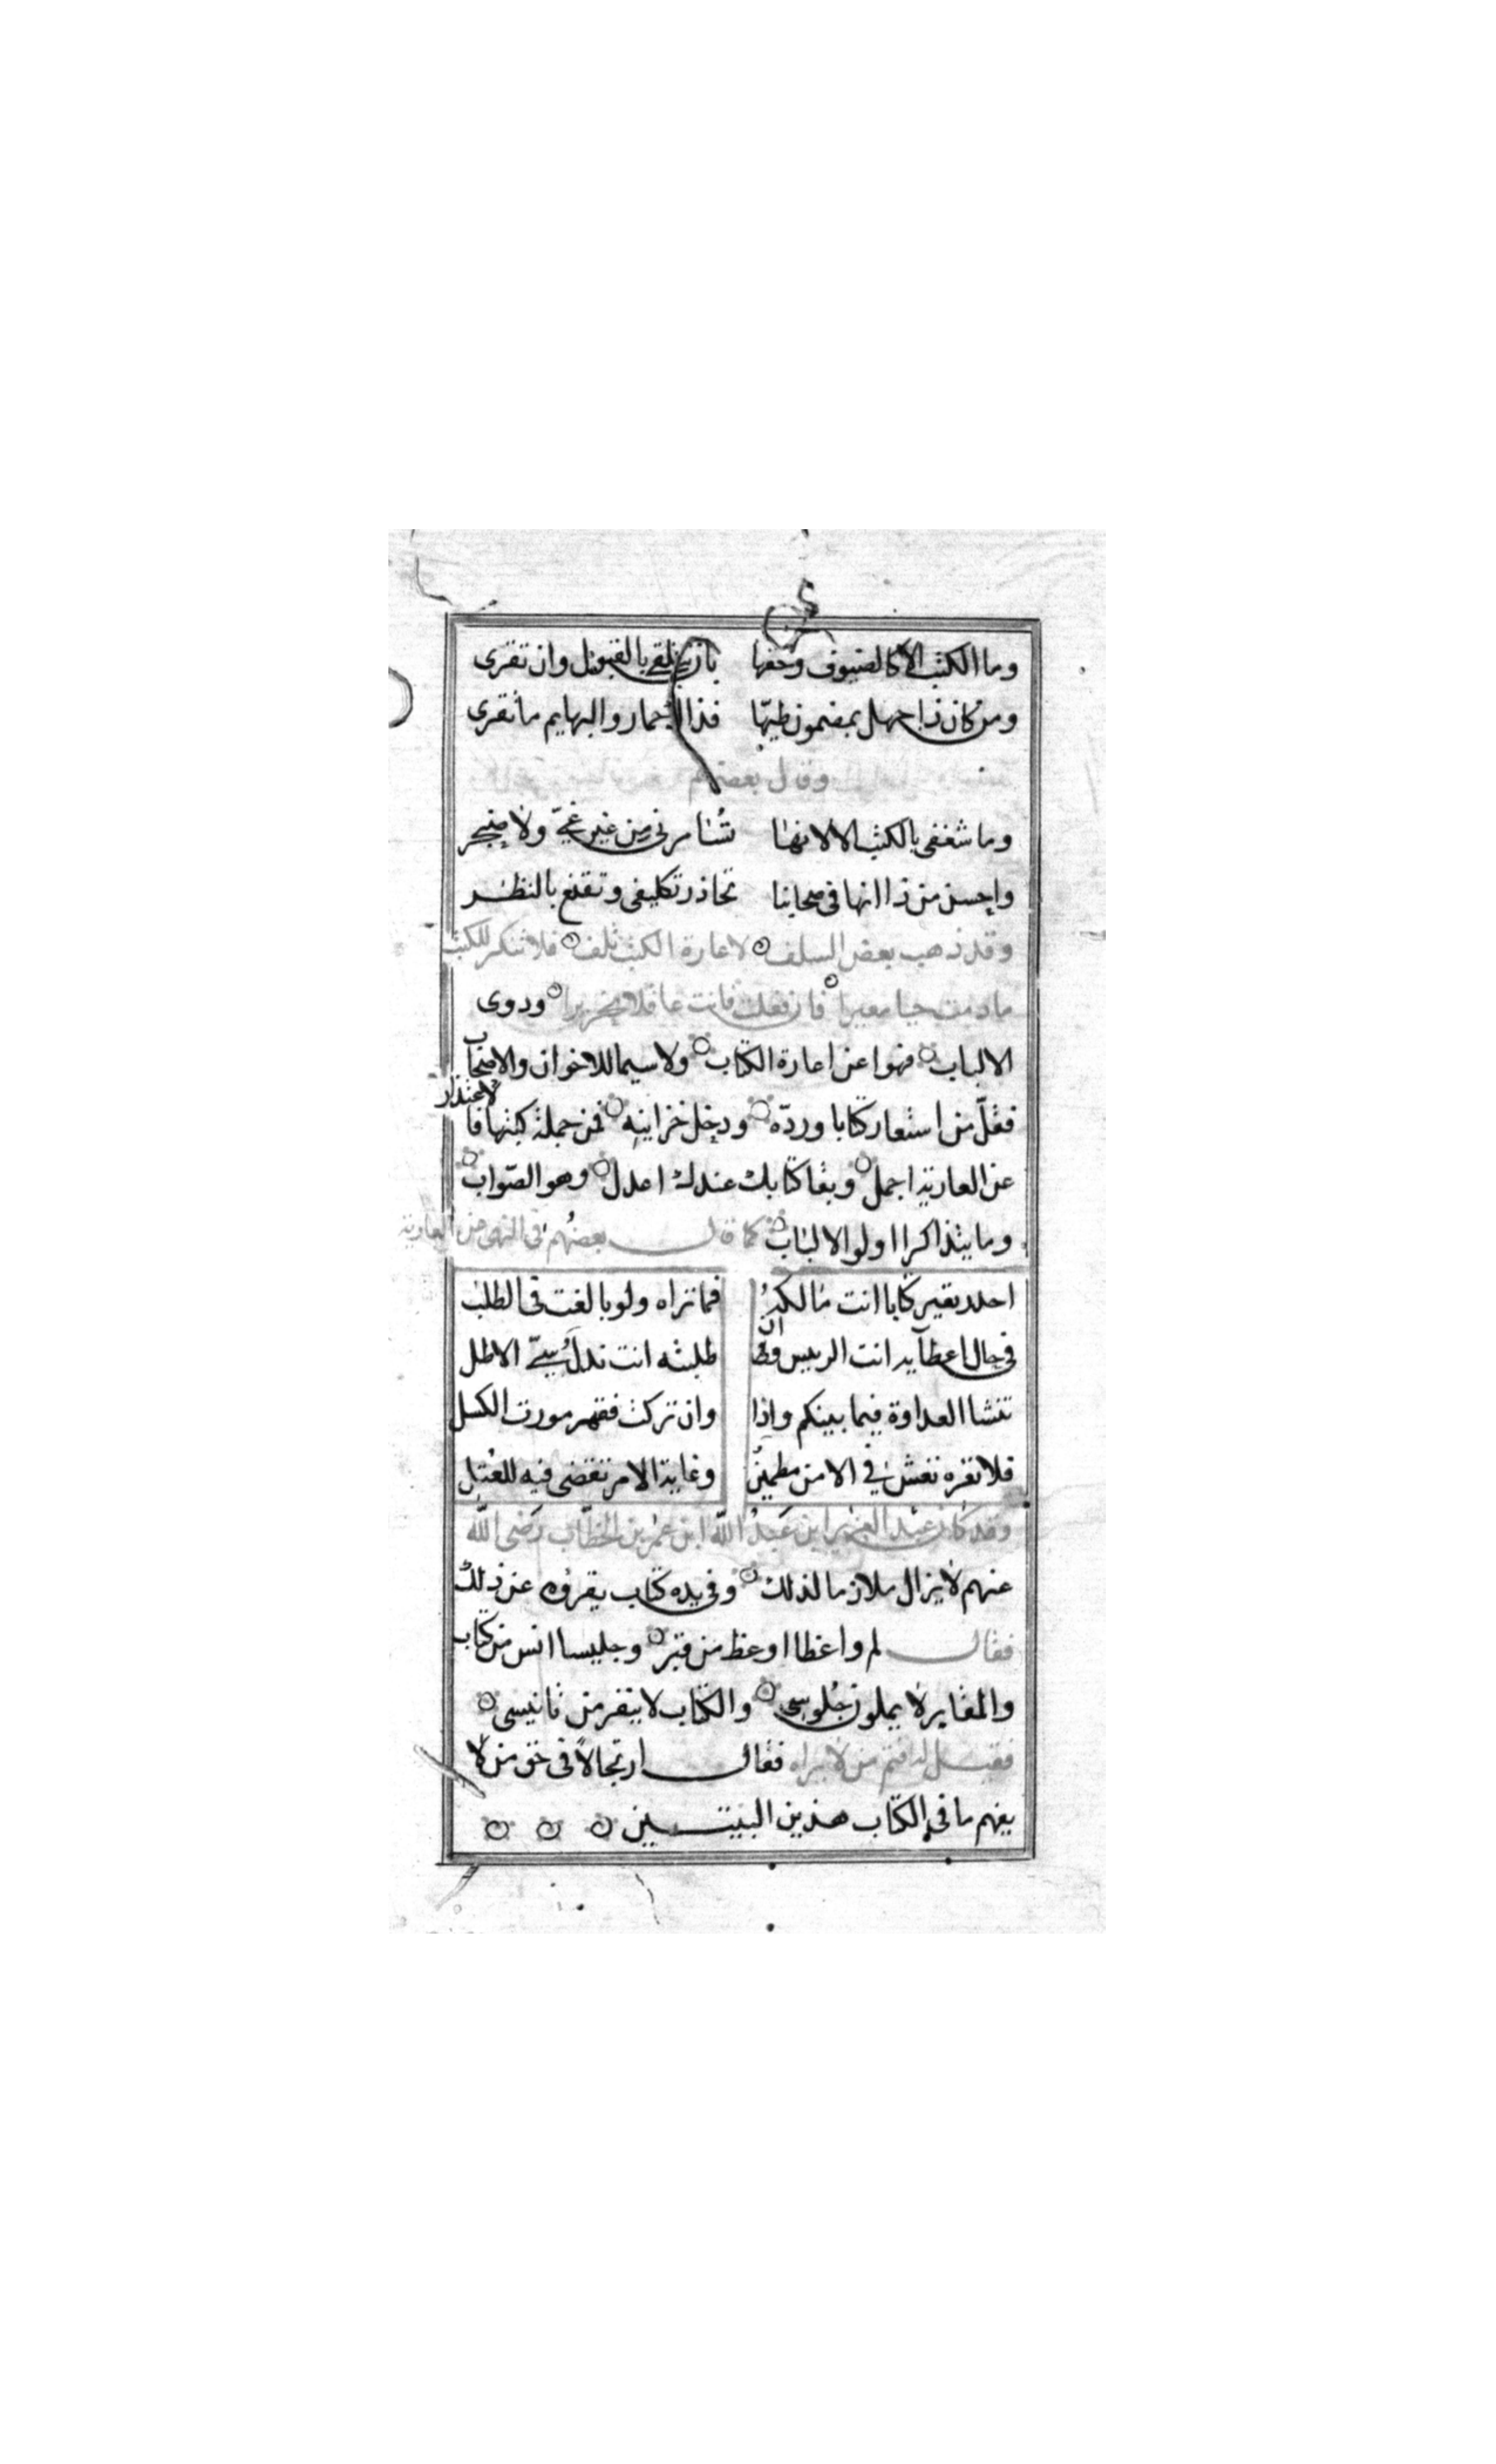 وما الكتب الا كالضيوف وحقها بان تلقى بالقبول وان تقرى
ومن كان ذا جهل بمضمون طيها فذا الحمار والبهايم ما تقرى
وقال بعضهم
وما شغفي بالكتب الا لانها تسامرني من غير غي ولا ضجر
واحسن من ذا انها في صحابنا تحاذر تكليفي وتقنع بالنظر
وقد ذهب بعض السلف لاعارة الكتب تلف فلا تنكر للكتب
مادمت حيا معيرا فان فعلت فانت عاقلا نحريرا ودوى
الالباب نهوا عن اعارة الكتاب ولا سيما للاخوان والاصحاب
فقل من استعار كتابا ورده ودخل خزاينه فمن جملة كتبها فالاعتذار
عن العارية اجمل وبقا كتابك عندك اعدل وهو الصواب
وما يتذاكرا اولو الالباب كما قال بعضهم في النهي عن العارية
احذر تعير كتابا انت مالكه فما تراه ولو بالغت في الطلب
في حال اعطآيه انت الرييس وان طلبته انت نذل سيئ
تنشا العداوة فيما بينكم واذا وان تركت فقهر مورث الكسل
فلا تعره تعش في الامن مطمين وغاية الامر تقضى فيه للعتل
وقد كان عبد العزيز ابن عبد الله ابن عمر بن الخطاب رضى الله
عنهم لا يزال ملازما لذلك وفي يده كتاب يقروه عن ذلك
فقال لم واعظا اوعظ من قبر وجليسا انس من كتاب
والمقابر لا يملون جلوسي والكتاب لا ينفر من تانيسي
فقيل له فتم من لا يراه فقال ارتجالا في حق من لا
يفهم ما في الكتاب هذين البيتين